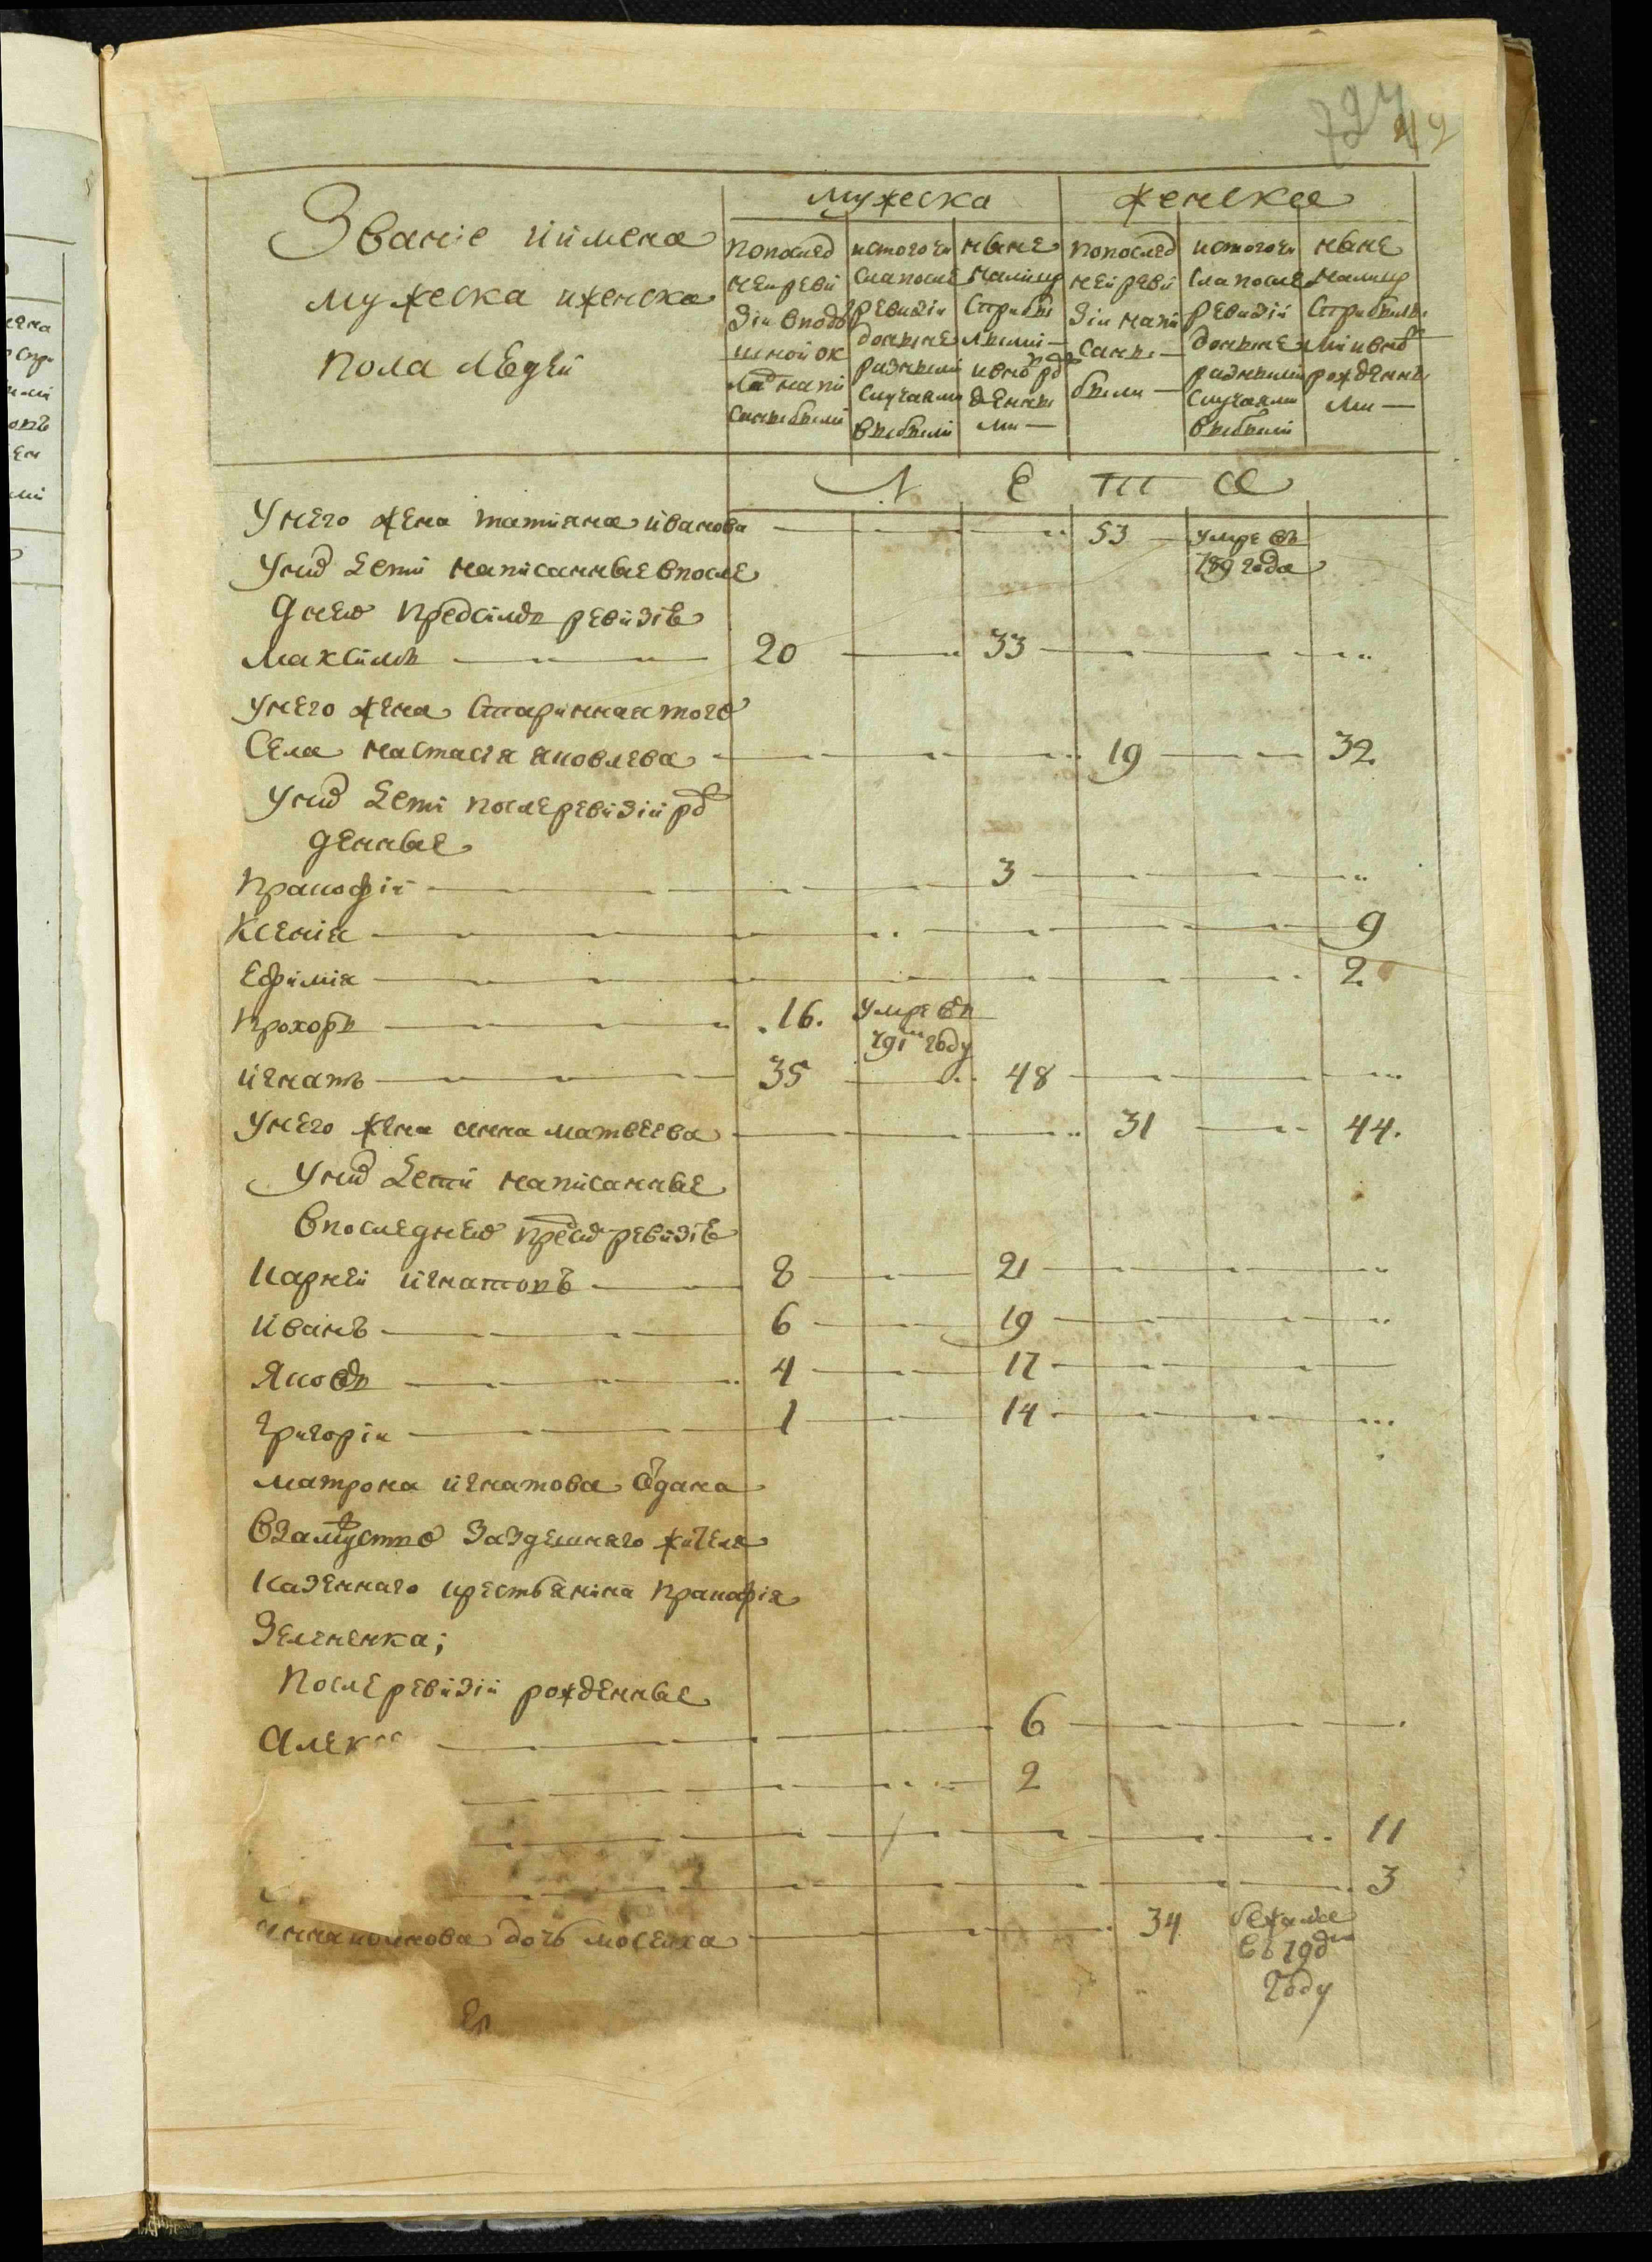 727
49
Званіе иимена
мужеска иженска
пола людей
мужеска
женска
попослед
ней реви
зіи вподу
шной ок
лад напи
саны были
истого чи
сла после
ревизіи
до ныне
разными
случаями
выбыли
ныне
налицо
сприбы
лыми
ивнов рож
денны
ми
попослед
ней реви
зіи напи
саны
были
истого чи
сла после
ревизіи
до ныне
разными
случаями
выбыли
ныне
налицо
сприбылы
ми ивновь
рожденны
ми
Л Е Т А
Унего жена татияна иванова 53 умре въ
789 года
Уних дети написанные впосле
днею пред сим ревизию
Максимъ 20 33
Унего жена старинная того
села настасія яковлева 19 32
Уних дети послеревизіи рож
денные
Пракофій 3
Ксения 9
Ефимия 2
Прохоръ 16. умре въ
791м году
игнатъ 35 48
Унего жена анна матвеева 31 44.
Уних дети написанные
впоследнею пред сим ревизию
Карней игнатовъ 8 21
иванъ 6 19
Яковъ 4 17
Григоріи 1 14
Матрона игнатова отдана
взамужство заздешняго жителя
казеннаго крестьянина пракофія
Зелененка;
Послеревизіи рожденные
Алекс 6
2
11
3
дочь мосейха 34 бежала
въ 79
году